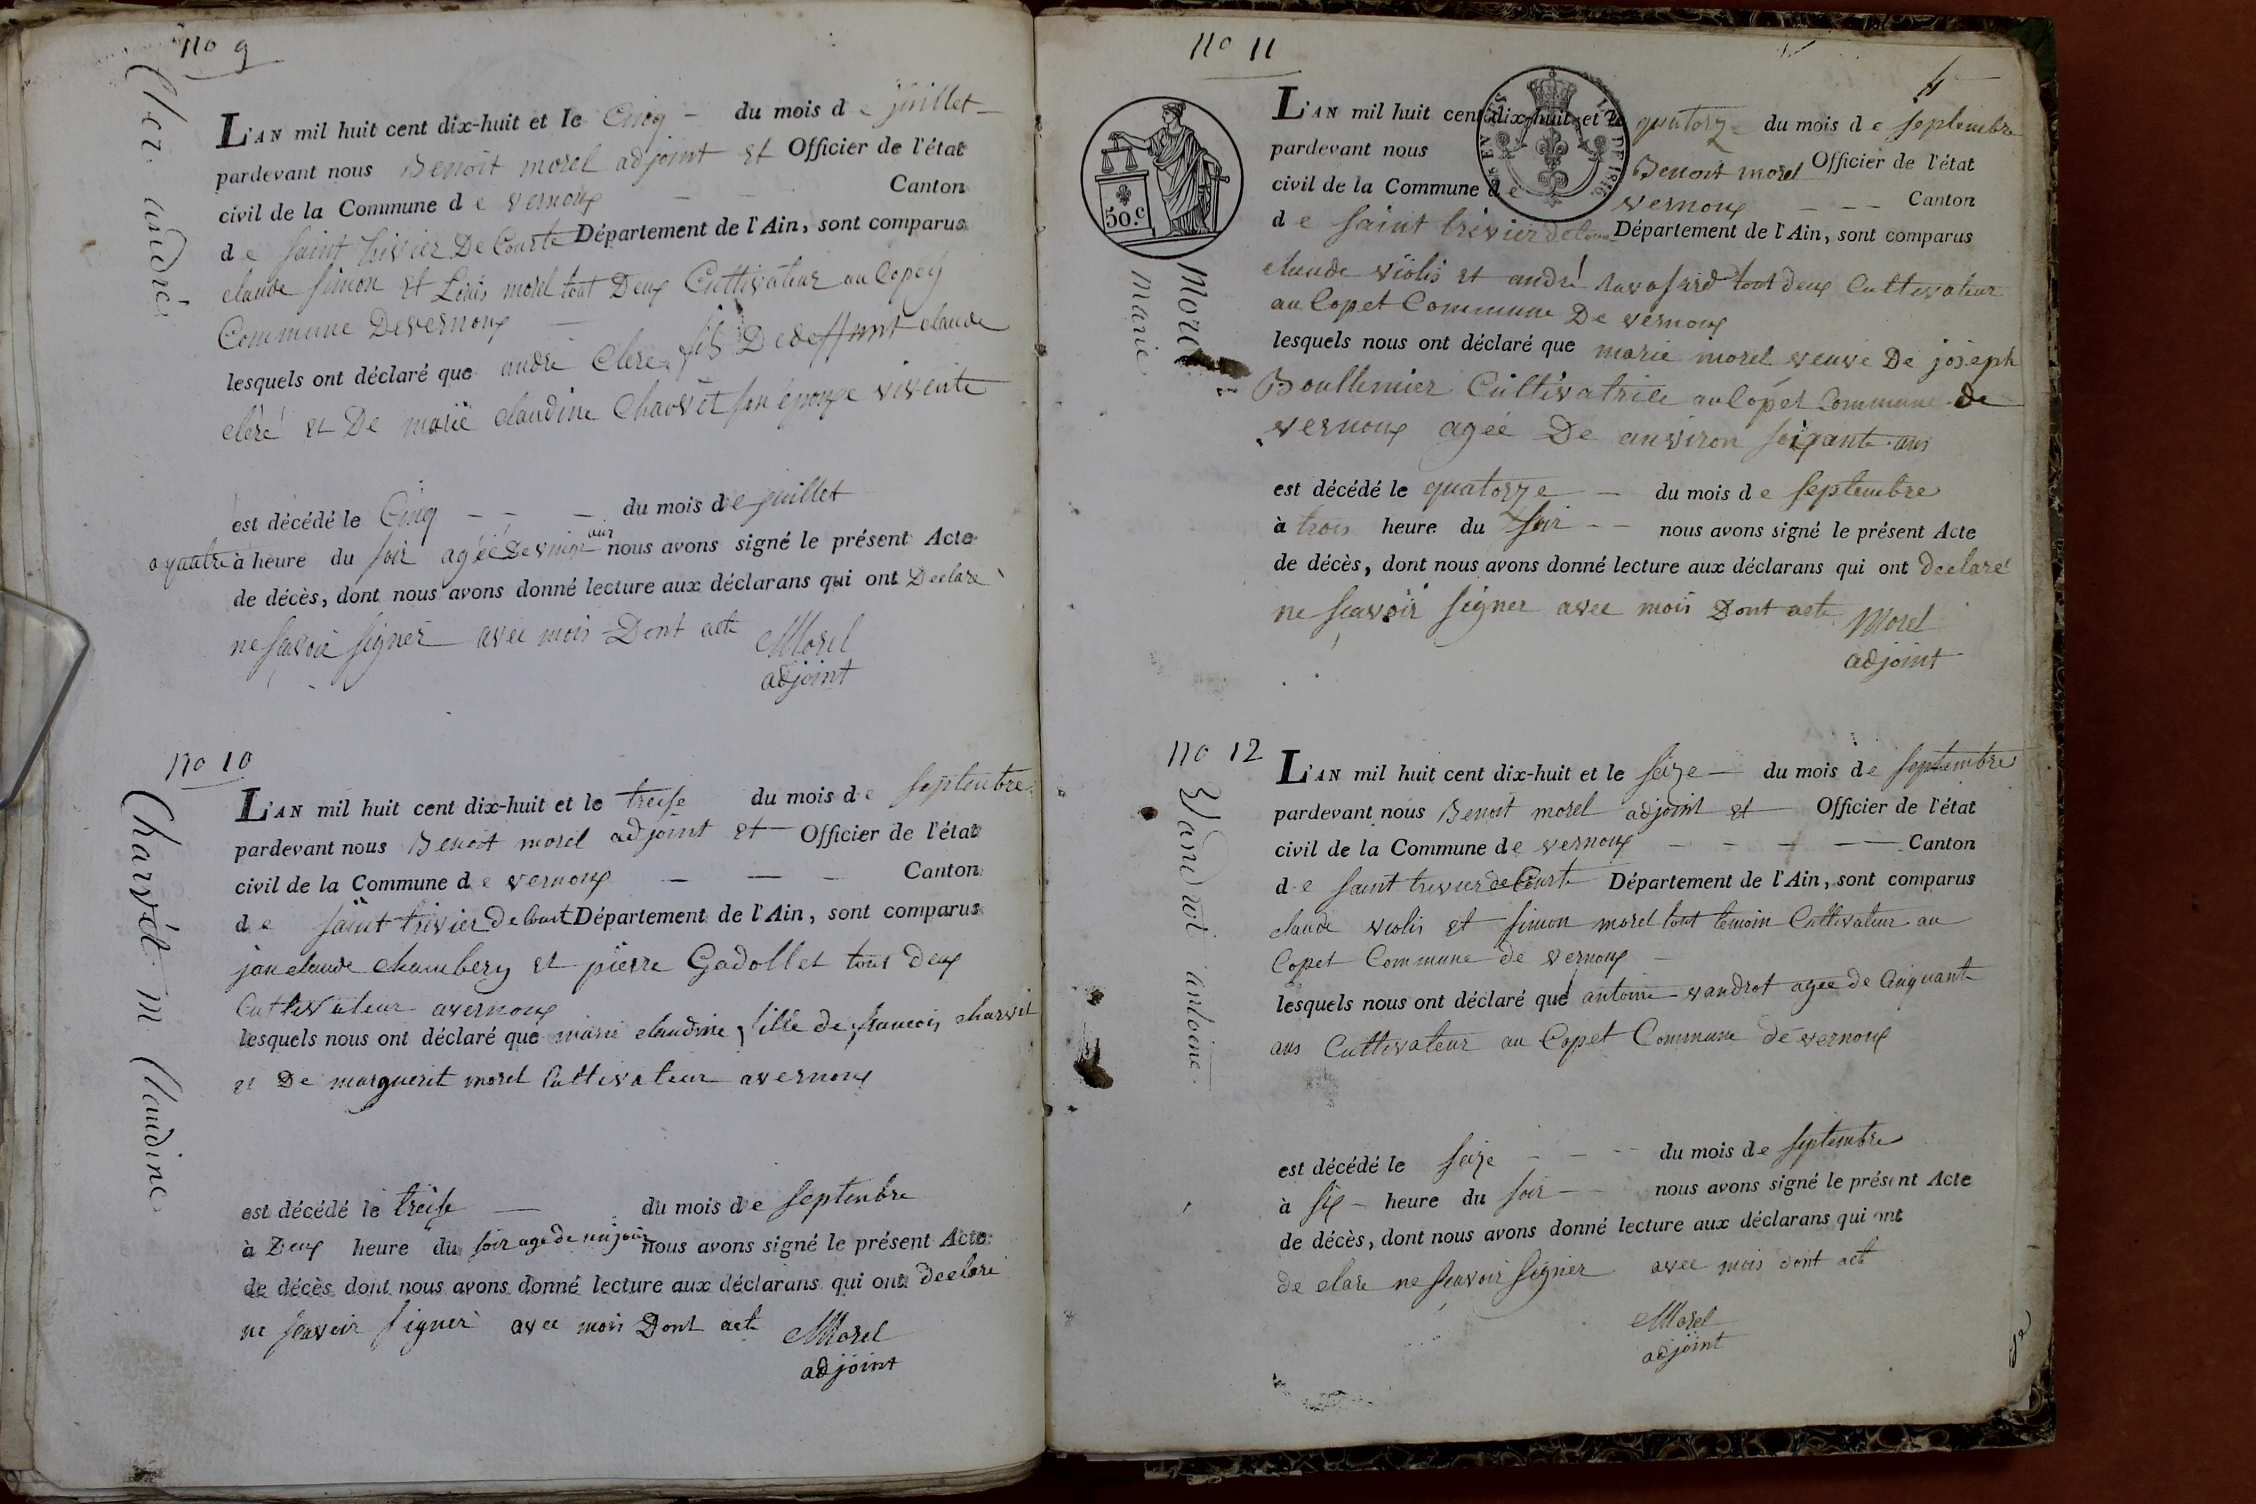 no 9
Cler andré
L'AN mil huit cent dix-huit et le Cinq - du mois de juillet
pardevant nous Benoit morel adjoint et Officier de l'état
civil de la Commune de vernoux - - Canton
de Saint trivier De Courte Département de l'Ain, sont comparus
claude simon et Louis morel tout Deux Cultivateur au Copey
Commune De vernoux
lesquels ont déclaré que andré Clere fils De deffunt claude
cleré et De marie claudine Charvet son épouse vivente
est décédé le Cinq - - - du mois de juillet
a quatre à heure du soir agée De vingt ans nous avons signé le présent Acte
de décès, dont nous avons donné lecture aux déclarans qui ont Declare
ne savoir signer avec mois Dont acte
Morel
adjoint
no 10
Charvét m Claudine
L'AN mil huit cent dix-huit et le treise du mois de septenbre
pardevant nous Benoit morel adjoint et Officier de l'état
civil de la Commune de vernoux - - - Canton
de saint trivier De Court Département de l'Ain, sont comparus
jan claude chambery et pierre Gadollet tout deux
Cultivateur avernoux
lesquels nous ont déclaré que marie claudine fille de francois charvet
et De marguerit morel Cultivateur avernoux
est décédé le treise - du mois de septenbre
à Deux heure du soir agé de un jour nous avons signé le présent Acte
de décès dont nous avons donné lecture aux déclarans qui ont declare
ne scavoir signer avec mois Dont acte
Morel
adjoint
no 11
4
50.c
LEV. DE 1816
Morel
marie
L'AN mil huit cent dix-huit et le quatorz du mois de septembre
pardevant nous Benoit morel Officier de l'état
civil de la Commune de vernoux - - - Canton
de saint trivier de Cour Département de l'Ain, sont comparus
claude violis et andré ravasard tout deux Cultivateur
au Copet Commune De vernoux
lesquels nous ont déclaré que marie morel veuve De joseph
Boullemier Cultivatrice au Copet Commune de
vernoux agée De anviron soixante ans
est décédé le quatorze - du mois de septembre
à trois heure du soir - - nous avons signé le présent Acte
de décès, dont nous avons donné lecture aux déclarans qui ont declaré
ne scavoir signer avec mois Dont acte
Morel
adjoint
no 12
Vandrot antoine
L'AN mil huit cent dix-huit et le seize - du mois de septembre
pardevant nous Benoit morel adjoint et Officier de l'état
civil de la Commune de vernoux - - - - Canton
de saint trivier de Courte Département de l'Ain, sont comparus
claude violis et simon morel tout temoin Cultivateur au
Copet Commune de vernoux -
lesquels nous ont déclaré que antoine vandrot agee de Cinquant
ans Cultivateur au Copet Commune de vernoux
est décédé le seize - - - du mois de septembre
à six - heure du soir - nous avons signé le présent Acte
de décès, dont nous avons donné lecture aux déclarans qui ont
de clare ne scavoir signer avec mois dont acte
Morel
adjoint